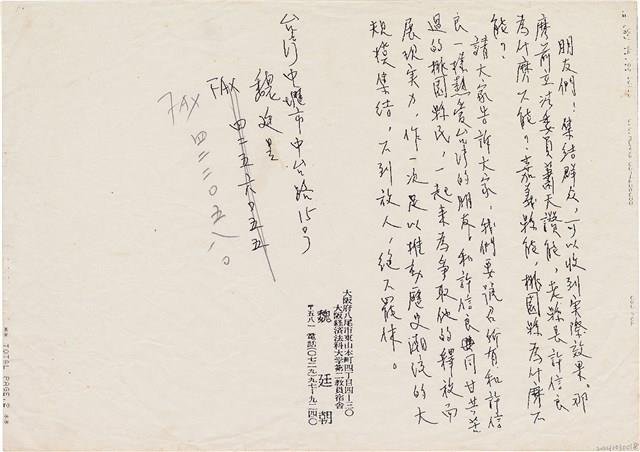 朋友們！集結群众，可以收到實際效果。那
麽前立法委員蕭天讚能，老縣長許信良
為什麽不能？嘉義縣能，桃園縣為什麽不
能？
請大家告訴大家，我們要號召所有和許信
良一樣熱愛台灣的朋友，和許信良共同甘共苦
過的桃園縣民，一起來為爭取他的釋放而
展現实力，作一次足以推動歷史潮流的大
規模集結，不到放人，絕不罷休。
台湾中壢市中台路15号
魏廷昱
FAX 四二五六九五五
FAX 四二二〇五八〇
大阪府八尾市東山本町四丁目四－三〇
大阪経済法科大学第二教員宿舎
魏 廷 朝
〒五八一 電話（〇七二九）九七－九二四〇
TOTAL PAGE.2